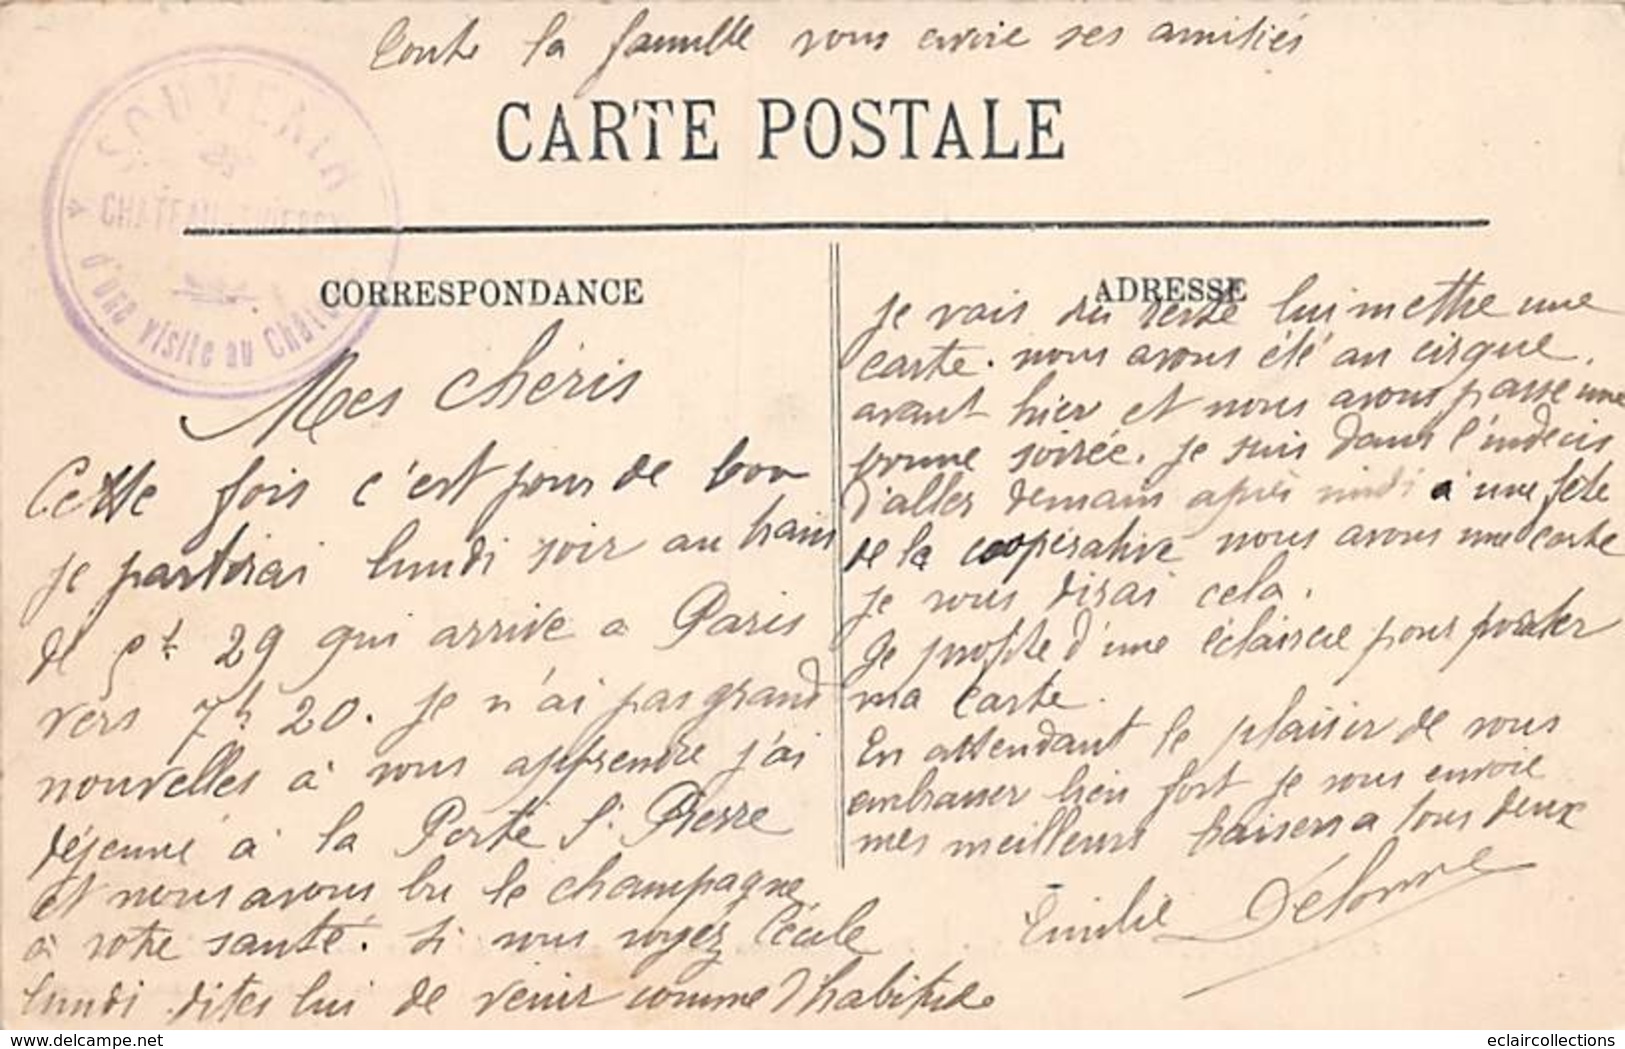 Toute la famille vous envoie ses amitiés
CARTE POSTALE
SOUVENIR
CHATEAU-THIERRY
d'une visite au Château
CORRESPONDANCE
ADRESSE
Mes chéris
Cette fois c'est pour de bon
je partirai lundi soir au train
de 5h 29 qui arrive à Paris
vers 7h 20. Je n'ai pas grand
nouvelles à vous apprendre j'ai
déjeuné à la Porte St Pierre
et nous avons bu le champagne
à votre santé. Si vous voyez Cécile
lundi dites lui de venir comme d'habitude
je vais du reste lui mettre une
carte. nous avons été au cirque
avant hier et nous avons passé une
bonne soirée. Je suis dans l'indecis
d'aller demain après midi à une fête
de la coopérative nous avons une carte
je vous dirai cela.
Je profite d'une éclaircie pour porter
ma carte.
En attendant le plaisir de vous
embrasser bien fort je vous envoie
mes meilleurs baisers a tous deux
Emilie Delorme
delcampe.net
eclaircollections